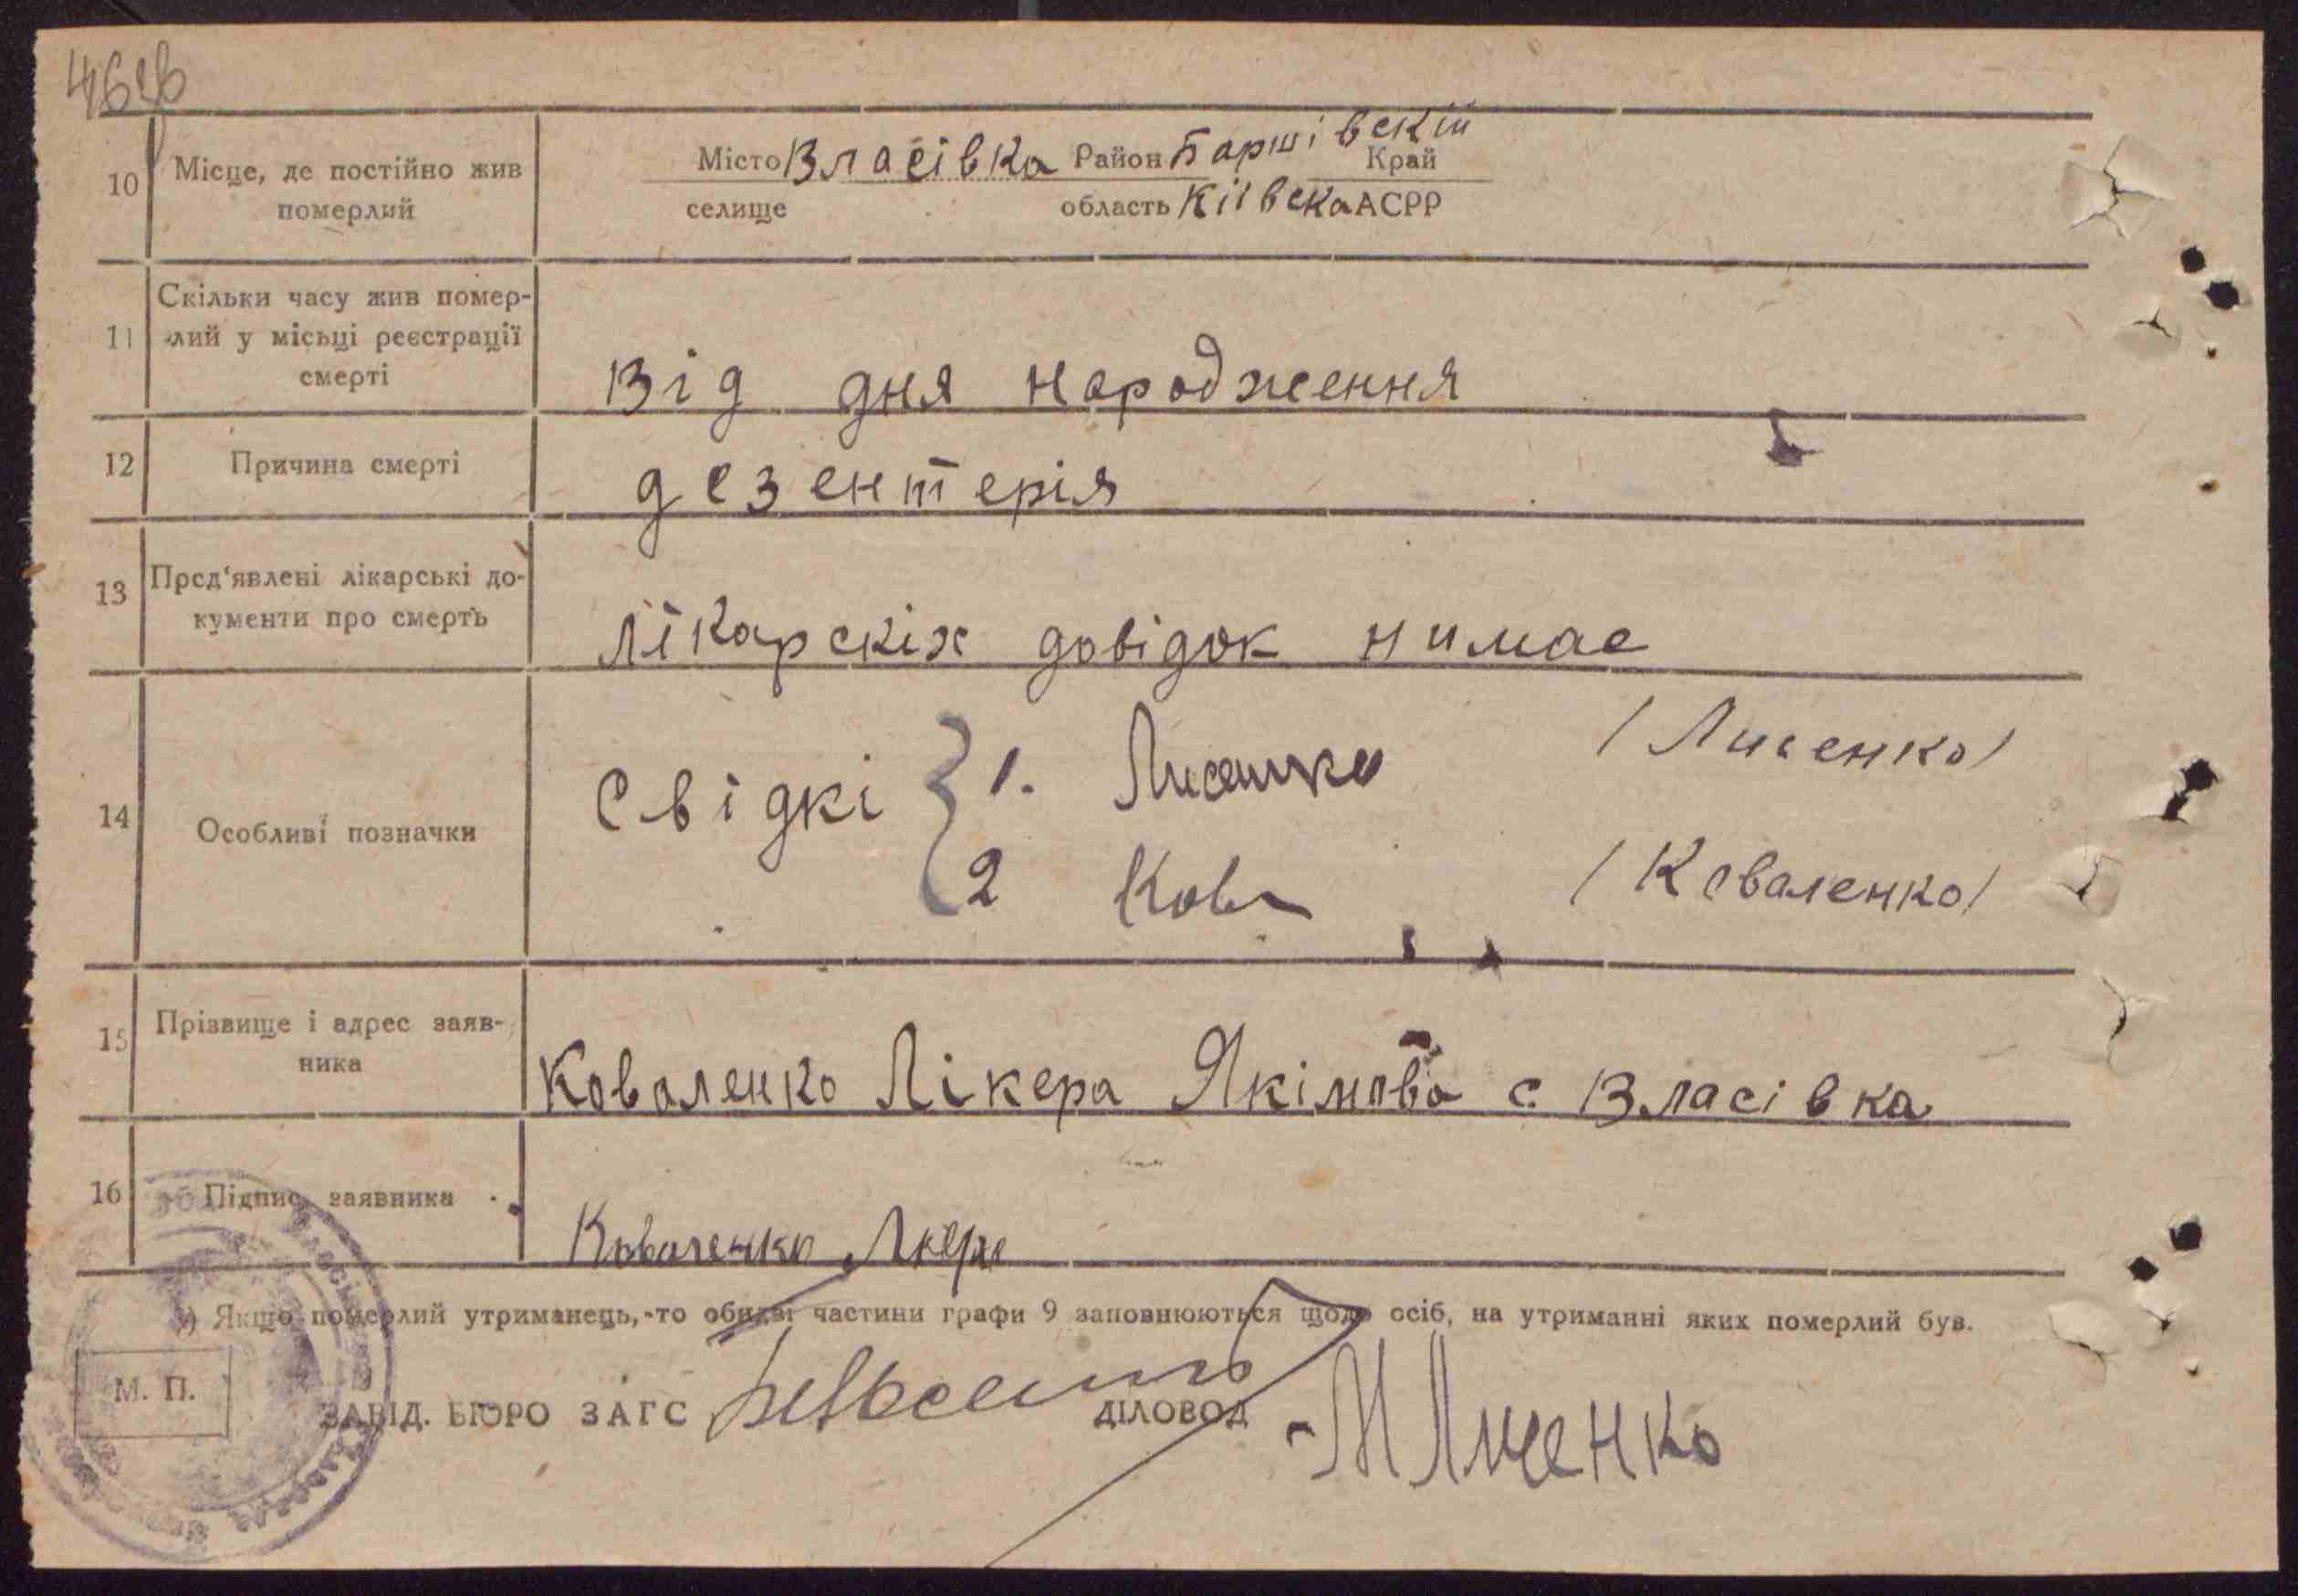 10 Місце, де постійно жив померлий
Місто Власівка Район Баршівскій Край
селище область Кіівска АСРР
11 Скільки часу жив помер-
лий у місьці реєстрації
смерті
Від дня народження
12 Причина смерті
дезентерія
13 Пред'явлені лікарські до-
кументи про смерть
лікарскіх довідок нимае
14 Особливі позначки
Свідкі 1. Лисенко /Лисенко/
2 Ков /Коваленко/
15 Прізвище і адрес заяв-
ника
Коваленко Лікера Якімова с. Власівка
16 Підпис заявника
Коваленко Лкера
Якщо померлий утриманець, то обидві частини графи 9 заповнюються щодо осіб, на утриманні яких померлий був.
М. П.
ЗАВІД. БЮРО ЗАГС ДІЛОВОД